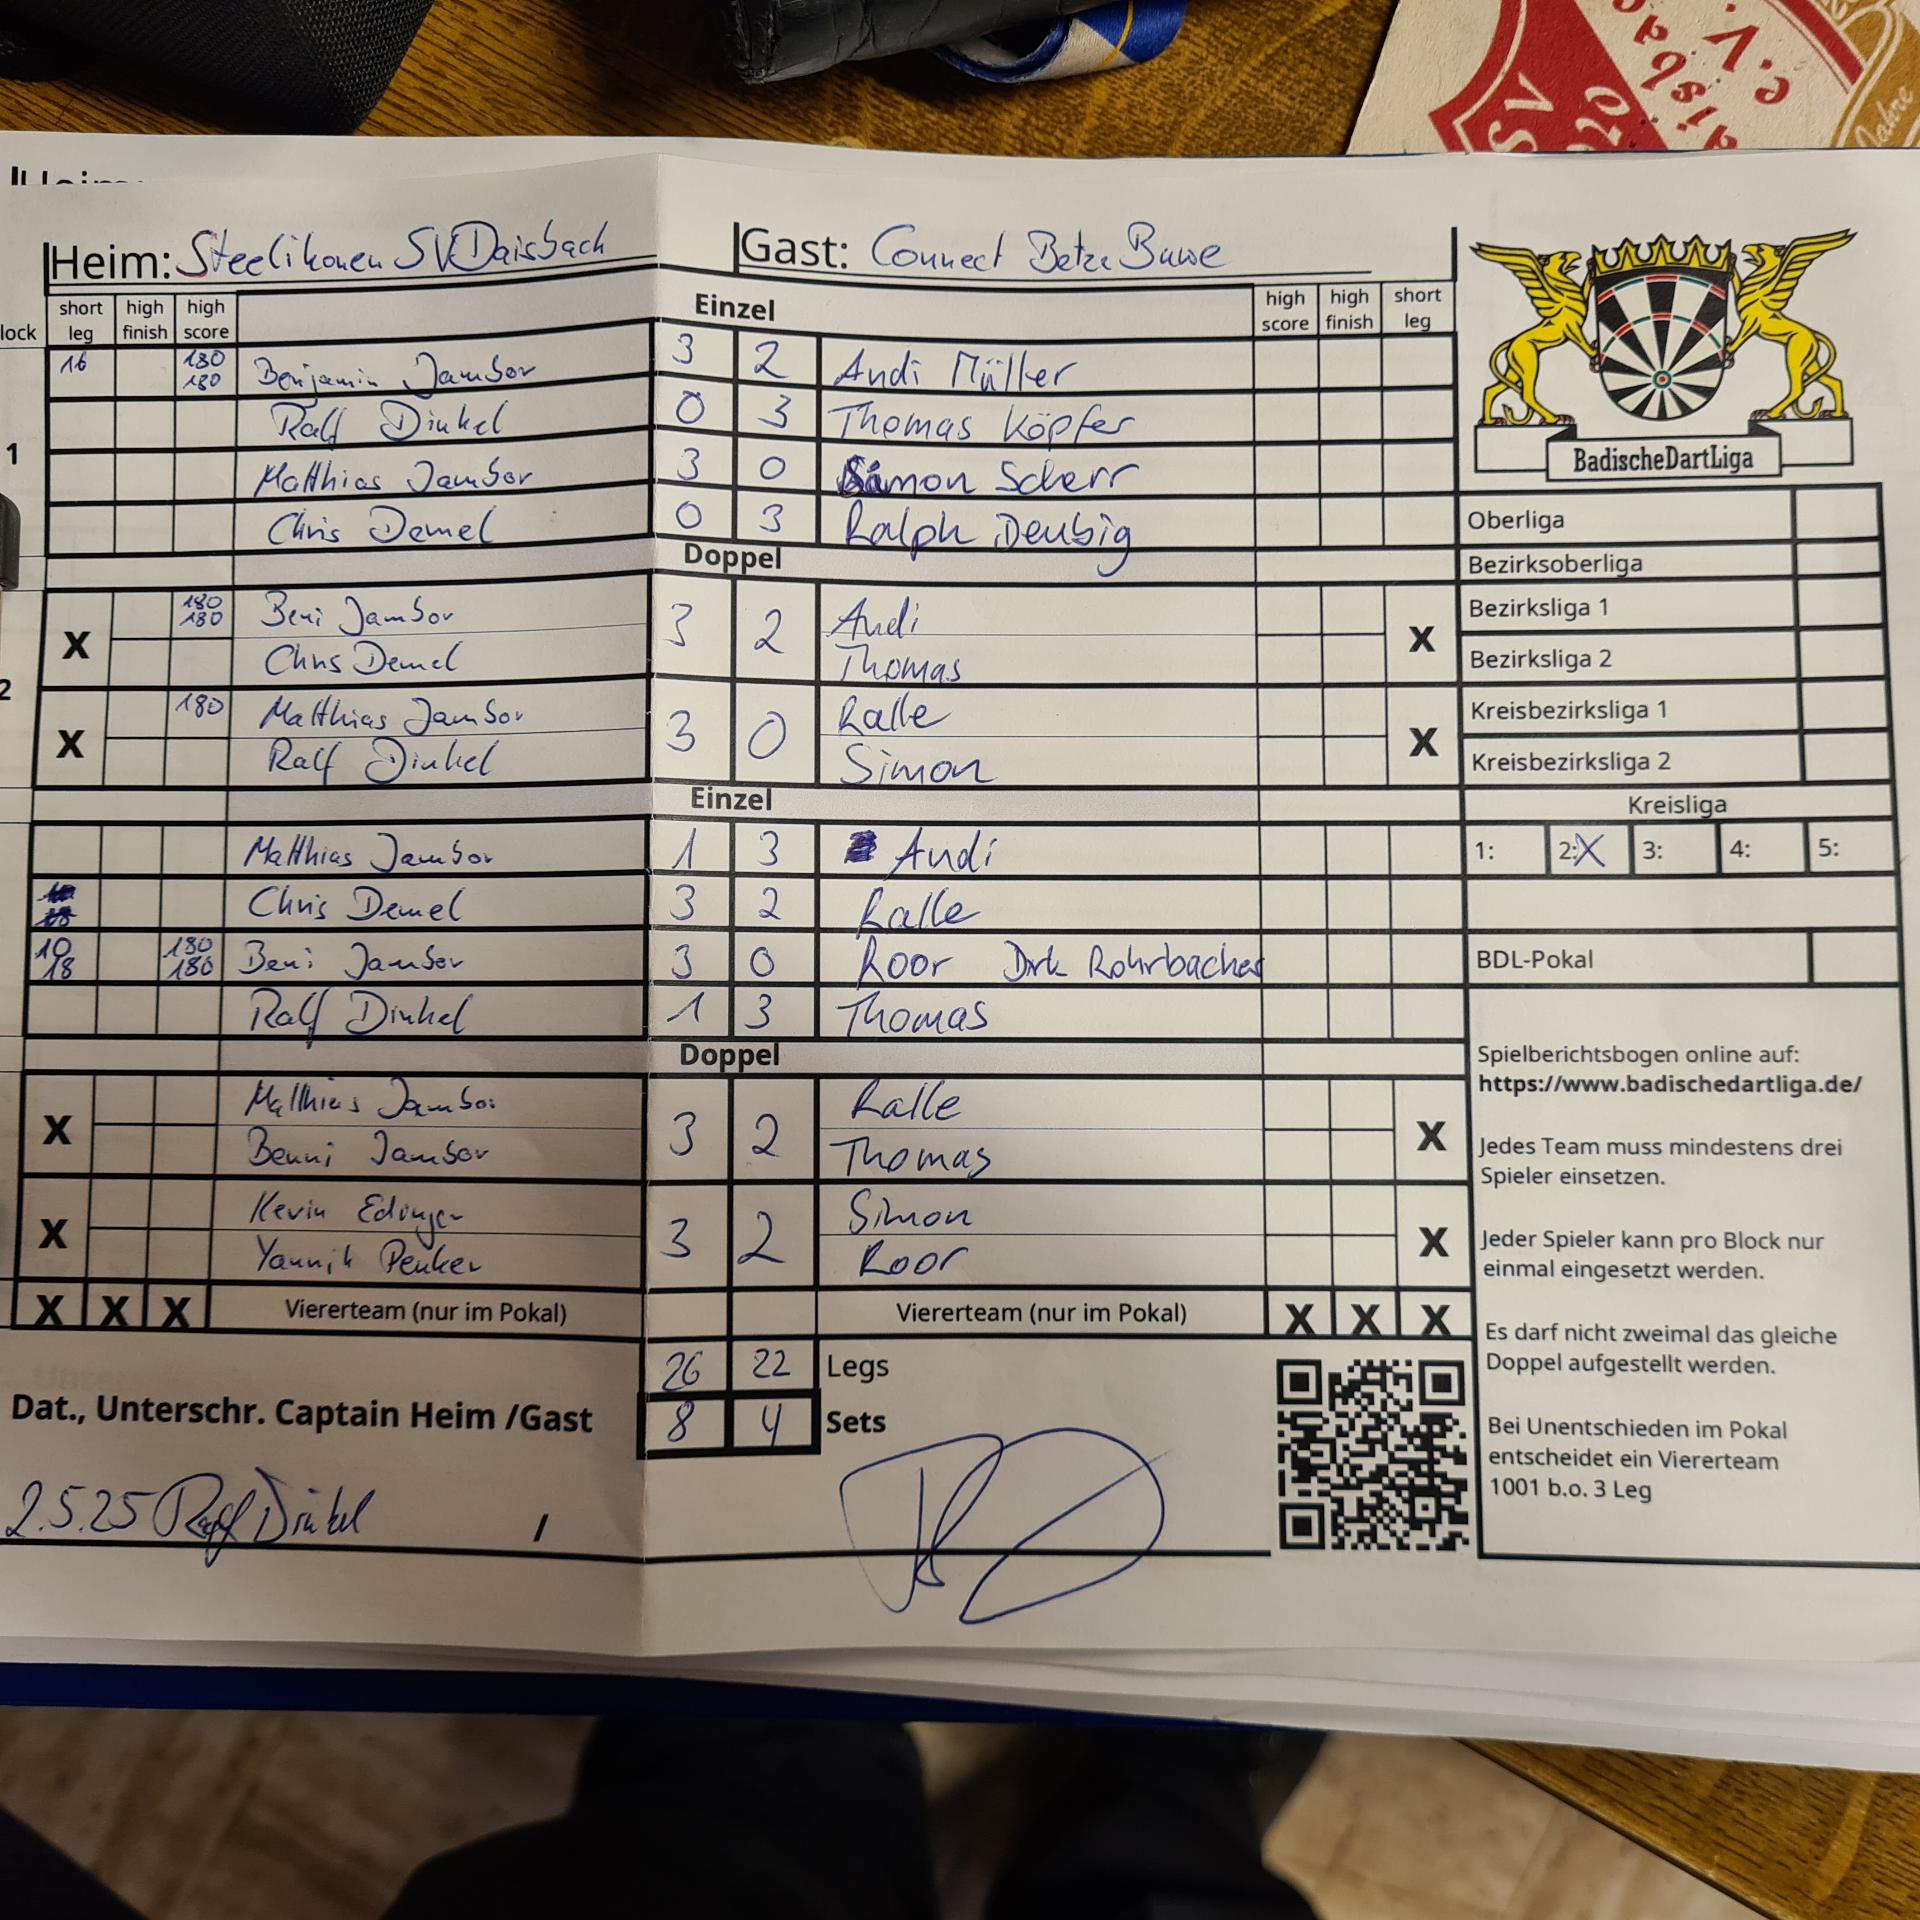 Heim: Steelikonen SV Daisbach Gast: Connect Betze Buwe
lock short leg high finish high score Einzel high score high finish short leg
1
16 180 180 Benjamin Jambor 3 2 Andi Müller
Ralf Dinkel 0 3 Thomas Köpfer
Matthias Jambor 3 0 Simon Scherr
Chris Demel 0 3 Ralph Deubig
Doppel
2
X 180 180 Beni Jambor 3 2 Andi X
Chris Demel Thomas
X 180 Matthias Jambor 3 0 Ralle X
Ralf Dinkel Simon
Einzel
Matthias Jambor 1 3 Andi
Chris Demel 3 2 Ralle
18 180 180 Beni Jambor 3 0 Roor Dirk Rohrbacher
Ralf Dinkel 1 3 Thomas
Doppel
X Matthias Jambor 3 2 Ralle X
Benni Jambor Thomas
X Kevin Edinger 3 2 Simon X
Yannik Penker Roor
X X X Viererteam (nur im Pokal) Viererteam (nur im Pokal) X X X
26 22 Legs
8 4 Sets
Dat., Unterschr. Captain Heim /Gast
2.5.25 Ralf Dinkel /
BadischeDartLiga
Oberliga
Bezirksoberliga
Bezirksliga 1
Bezirksliga 2
Kreisbezirksliga 1
Kreisbezirksliga 2
Kreisliga
1: 2:X 3: 4: 5:
BDL-Pokal
Spielberichtsbogen online auf:
https://www.badischedartliga.de/
Jedes Team muss mindestens drei
Spieler einsetzen.
Jeder Spieler kann pro Block nur
einmal eingesetzt werden.
Es darf nicht zweimal das gleiche
Doppel aufgestellt werden.
Bei Unentschieden im Pokal
entscheidet ein Viererteam
1001 b.o. 3 Leg
SV
e.V.
Jahre